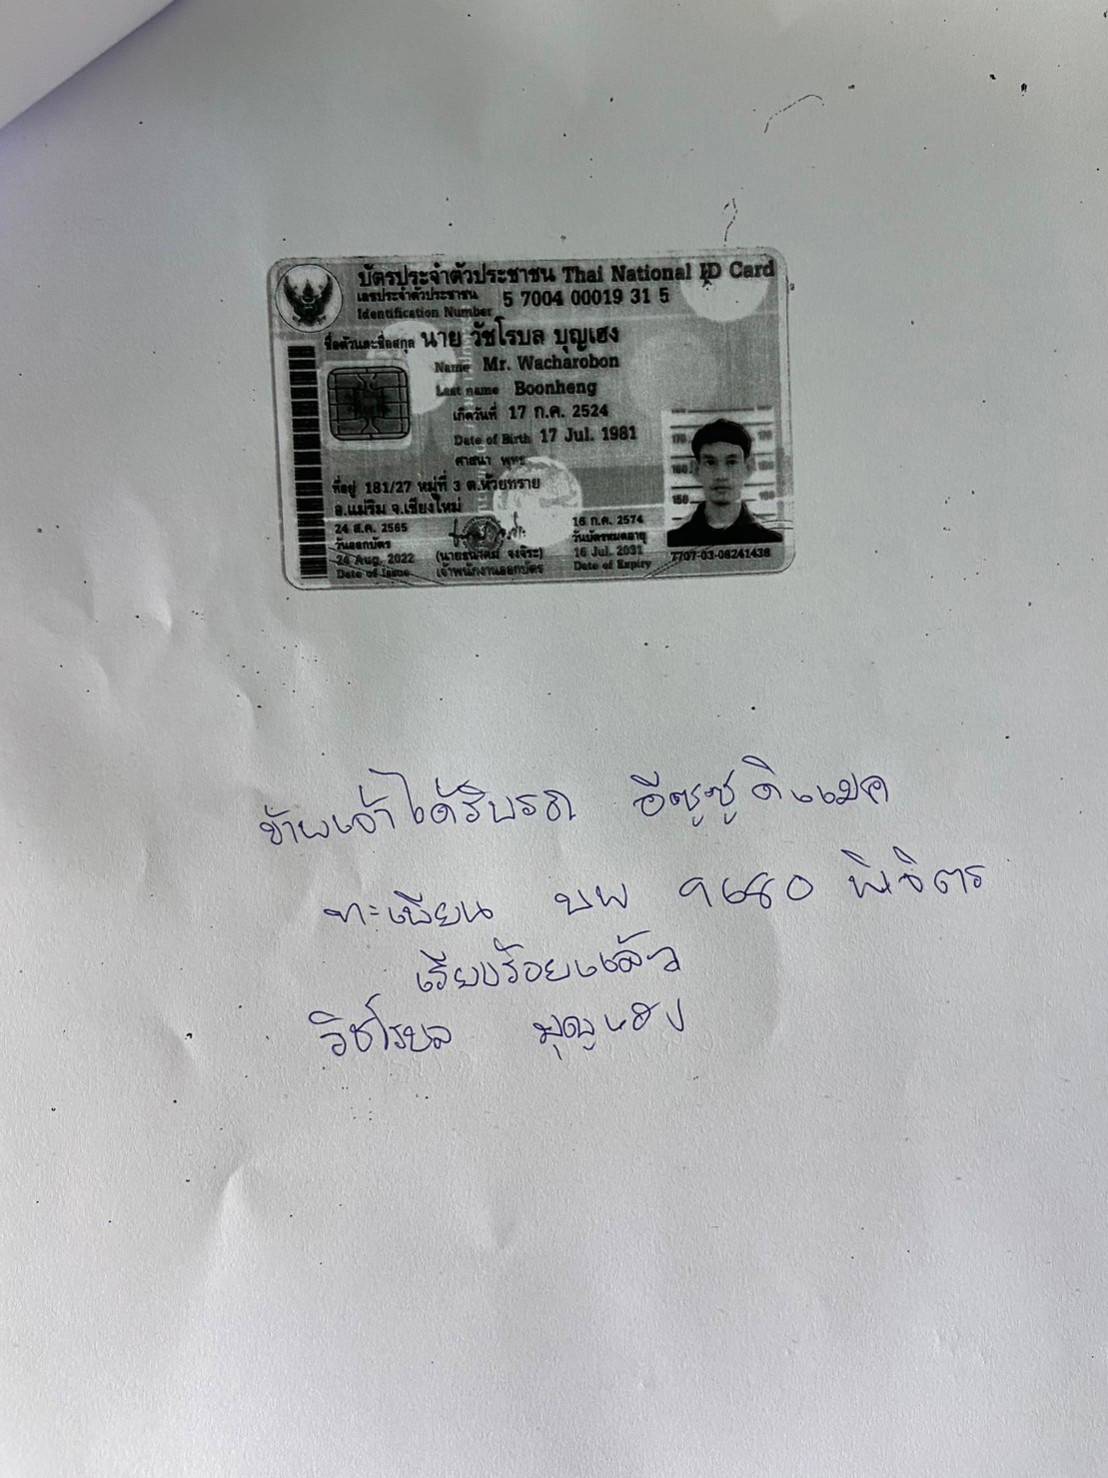 บัตรประจำตัวประชาชน Thai National ID Card
เลขประจำตัวประชาชน 5 7004 00019 31 5
Identification Number
ชื่อตัวและชื่อสกุล นาย วัชโรบล บุญเฮง
Name Mr. Wacharobon
Last name Boonheng
เกิดวันที่ 17 ก.ค. 2524
Date of Birth 17 Jul. 1981
ศาสนา พุทธ
ที่อยู่ 181/27 หมู่ที่ 3 ต.ห้วยทราย
อ.แม่ริม จ.เชียงใหม่
24 ส.ค. 2565
วันออกบัตร
24 Aug. 2022
Date of Issue
เจ้าพนักงานออกบัตร
16 ก.ค. 2574
วันบัตรหมดอายุ
16 Jul. 2031
Date of Expiry
7707-03-08241438
ข้าพเจ้าได้รับรถ อีซูซูดิแมค
ทะเบียน บพ พิจิตร
เรียบร้อยแล้ว
วัชโรบล บุญเฮง